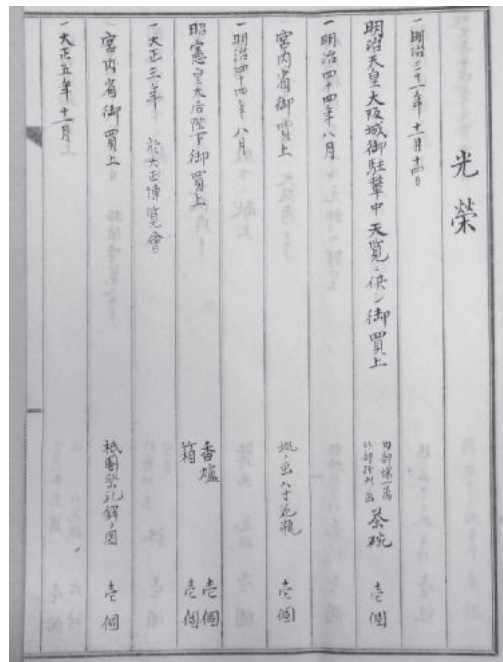 光榮
一明治三十一年十一月十四日
明治天皇大阪城御駐輦中天覧ニ供シ御買上
内部蝶一萬
外部行列畫 茶碗 壱個
一明治四十四年八月
宮内省御買上 花瓶 壱個
一明治四十四年八月
昭憲皇太后陛下御買上 香爐 壱個
箱 壱個
一大正三年 於大正博覧會
宮内省御買上 祇園祭礼鉾ノ図 壱個
一大正五年十一月